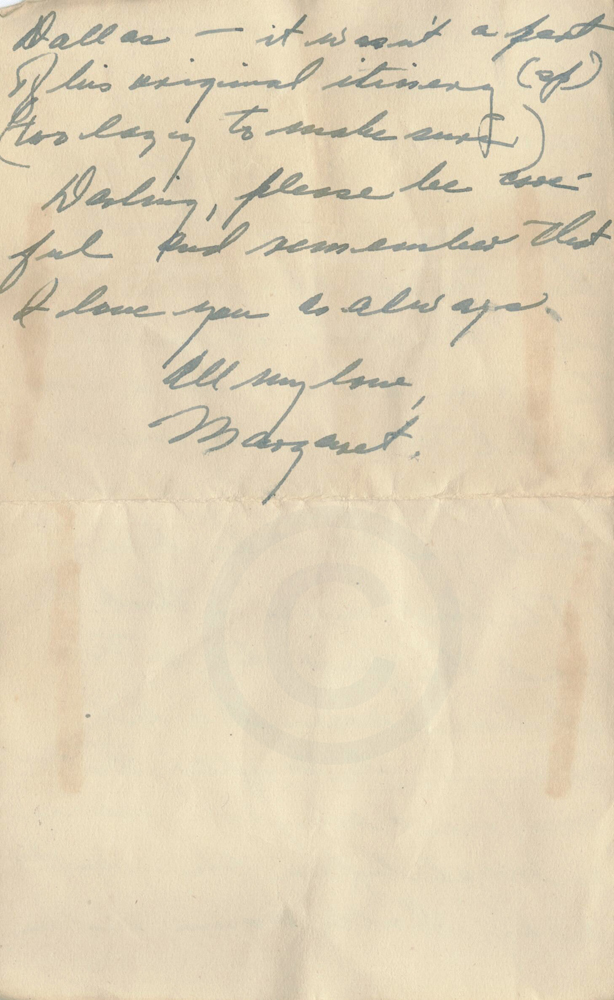 Dallas — it wasn't a part
of his original itinery (sp)
(too lazy to make sure.)
Darling, please be care-
ful and remember that
I love you as always.
All my love,
Margaret.
©